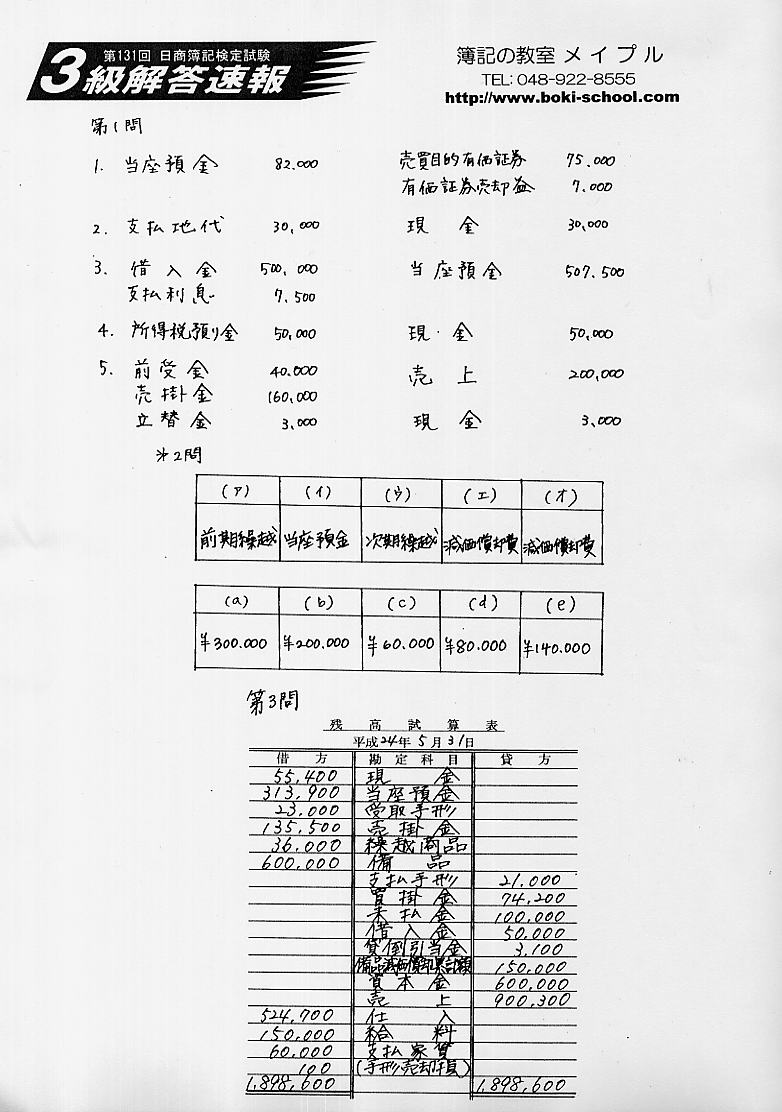 第131回 日商簿記検定試験
3級解答速報
簿記の教室 メイプル
TEL: 048-922-8555
http://www.boki-school.com
第1問
1. 当座預金 82.000 売買目的有価証券 75.000
有価証券売却益 7.000
2. 支払地代 30,000 現金 30,000
3. 借入金 500,000 当座預金 507.500
支払利息 7.500
4. 所得税預り金 50,000 現金 50,000
5. 前受金 40.000 売上 200,000
売掛金 160,000
立替金 3,000 現金 3,000
第2問
(ア) (イ) (ウ) (エ) (オ)
前期繰越 当座預金 次期繰越 減価償却費 減価償却費
(a) (b) (c) (d) (e)
¥300.000 ¥200.000 ¥60.000 ¥80.000 ¥140.000
第3問
残高試算表
平成24年5月31日
借方 勘定科目 貸方
55,400 現金
313,900 当座預金
23,000 受取手形
135,500 売掛金
36,000 繰越商品
600,000 備品
支払手形 21,000
買掛金 74,200
未払金 100,000
借入金 50,000
貸倒引当金 3,100
備品減価償却累計額 150,000
資本金 600,000
売上 900,300
524,700 仕入
150,000 給料
60,000 支払家賃
100 (手形売却損)
1,898,600 1,898,600